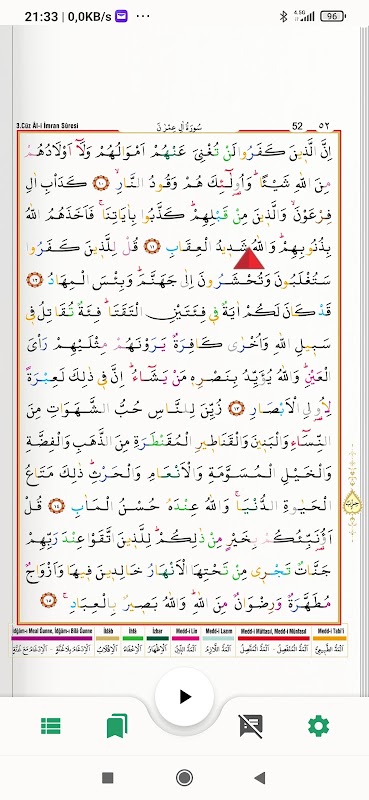 21:33 | 0,0KB/s ... 4.5G 96
3.Cüz Âl-i İmran Sûresi سُورَةُ اٰلِ عِمْرٰنَ 52 ٥٢
اِنَّ الَّذ۪ينَ كَفَرُوا لَنْ تُغْنِيَ عَنْهُمْ اَمْوَالُهُمْ وَلَٓا اَوْلَادُهُمْ
مِنَ اللّٰهِ شَيْـًٔاۜ وَاُو۬لٰٓئِكَ هُمْ وَقُودُ النَّارِۙ ١٠ كَدَأْبِ اٰلِ
فِرْعَوْنَۙ وَالَّذ۪ينَ مِنْ قَبْلِهِمْۜ كَذَّبُوا بِاٰيَاتِنَاۚ فَاَخَذَهُمُ اللّٰهُ
بِذُنُوبِهِمْۜ وَاللّٰهُ شَد۪يدُ الْعِقَابِ ١١ قُلْ لِلَّذ۪ينَ كَفَرُوا
سَتُغْلَبُونَ وَتُحْشَرُونَ اِلٰى جَهَنَّمَۜ وَبِئْسَ الْمِهَادُ ١٢
قَدْ كَانَ لَكُمْ اٰيَةٌ ف۪ي فِئَتَيْنِ الْتَقَتَاۜ فِئَةٌ تُقَاتِلُ ف۪ي
سَب۪يلِ اللّٰهِ وَاُخْرٰى كَافِرَةٌ يَرَوْنَهُمْ مِثْلَيْهِمْ رَأْيَ
الْعَيْنِۜ وَاللّٰهُ يُؤَيِّدُ بِنَصْرِه۪ مَنْ يَشَٓاءُۜ اِنَّ ف۪ي ذٰلِكَ لَعِبْرَةً
لِاُو۬لِي الْاَبْصَارِ ١٣ زُيِّنَ لِلنَّاسِ حُبُّ الشَّهَوَاتِ مِنَ
النِّسَٓاءِ وَالْبَن۪ينَ وَالْقَنَاط۪يرِ الْمُقَنْطَرَةِ مِنَ الذَّهَبِ وَالْفِضَّةِ
وَالْخَيْلِ الْمُسَوَّمَةِ وَالْاَنْعَامِ وَالْحَرْثِۜ ذٰلِكَ مَتَاعُ
الْحَيٰوةِ الدُّنْيَاۚ وَاللّٰهُ عِنْدَهُ حُسْنُ الْمَاٰبِ ١٤ قُلْ
اَؤُ۬نَبِّئُكُمْ بِخَيْرٍ مِنْ ذٰلِكُمْۜ لِلَّذ۪ينَ اتَّقَوْا عِنْدَ رَبِّهِمْ
جَنَّاتٌ تَجْر۪ي مِنْ تَحْتِهَا الْاَنْهَارُ خَالِد۪ينَ ف۪يهَا وَاَزْوَاجٌ
مُطَهَّرَةٌ وَرِضْوَانٌ مِنَ اللّٰهِۜ وَاللّٰهُ بَص۪يرٌ بِالْعِبَادِۚ ١٥
İdğâm-ı Meal Ğunne, İdğâm-ı Bilâ Ğunne İklâb İhfâ İzhar Medd-i Lin Medd-i Lazım Medd-i Muttasıl, Medd-i Munfasıl Medd-i Tabi'i